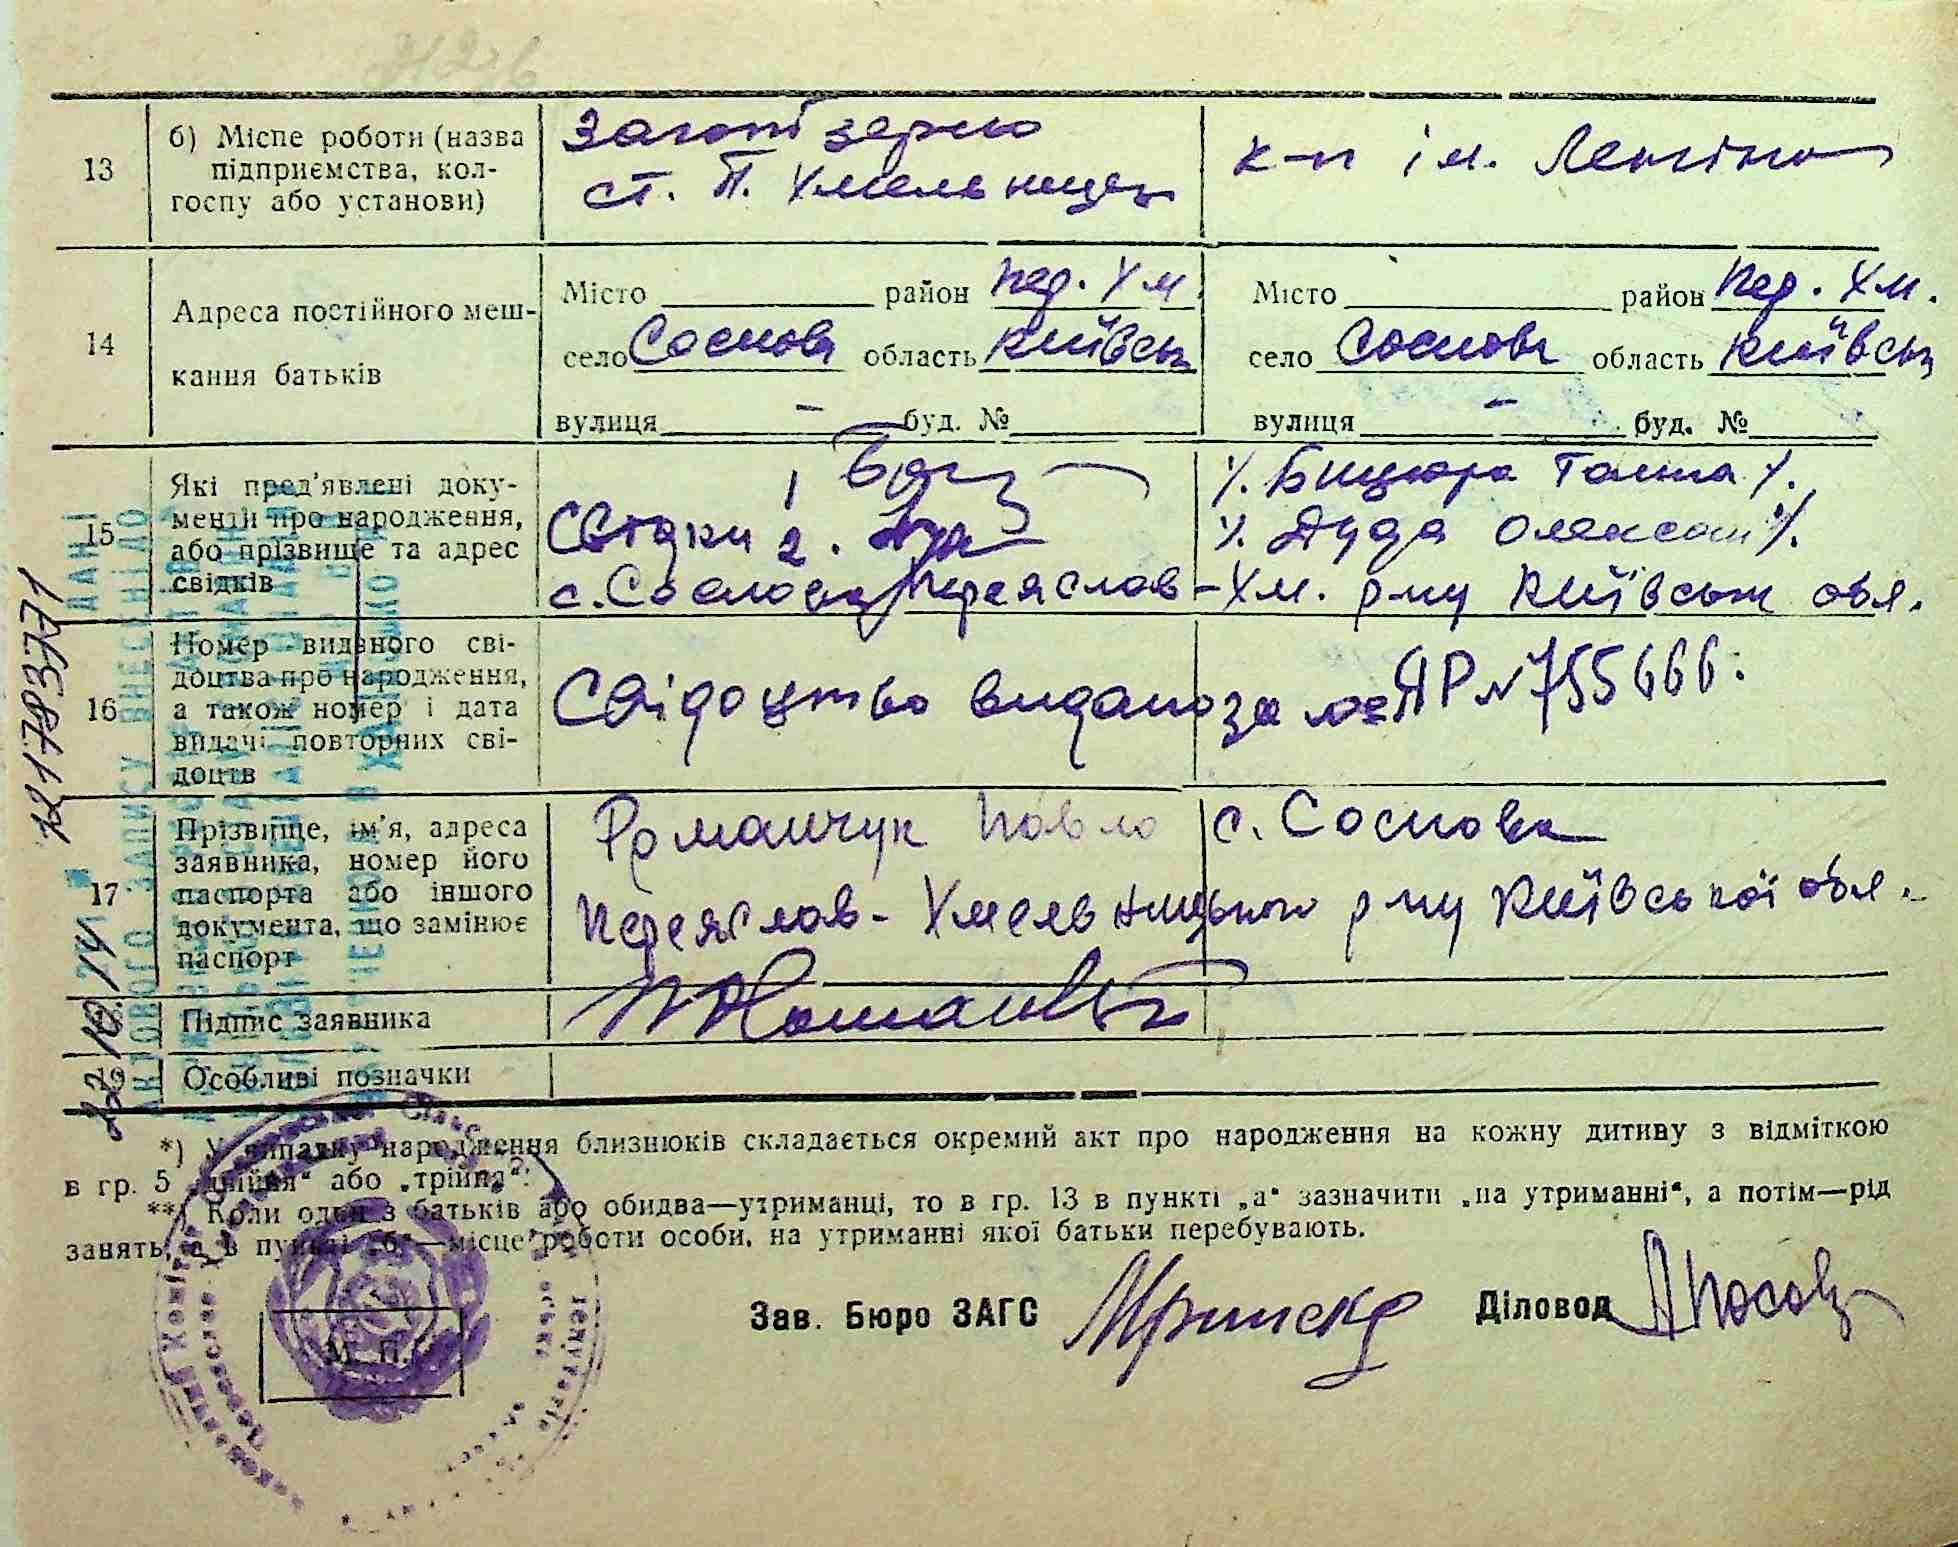 13
б) Місце роботи (назва підприємства, колгоспу або установи)
Заготзерно
ст. П. Хмельницьк
к-п ім. Леніна
14
Адреса постійного мешкання батьків
Місто район Пер. Хм.
село Соснова область Київськ
вулиця – буд. №
Місто район Пер. Хм.
село Соснова область Київськ
вулиця – буд. №
15
Які пред'явлені документи про народження, або прізвище та адрес свідків
1
Свідки 2.
/. Бицюра Ганна /.
/. Дуда Олексан /.
с. Соснова Переяслав-Хм. р-ну Київськ обл.
16
Номер виданого свідоцтва про народження, а також номер і дата видачі повторних свідоцтв
Свідоцтво видано за № ЯР № 755666.
17
Прізвище, ім'я, адреса заявника, номер його паспорта або іншого документа, що замінює паспорт
Романчук Павло с. Соснова
Переяслав-Хмельницького р-ну Київської обл.
18
Підпис заявника
19
Особливі позначки
*) У випадку народження близнюків складається окремий акт про народження на кожну дитину з відміткою
в гр. 5 „двійня“ або „трійня“.
**) Коли один з батьків або обидва—утриманці, то в гр. 13 в пункті „а“ зазначити „на утриманні“, а потім—рід
занять, а в пункті „б“—місце роботи особи, на утриманні якої батьки перебувають.
Зав. Бюро ЗАГС
Діловод
М. П.
22.10.14